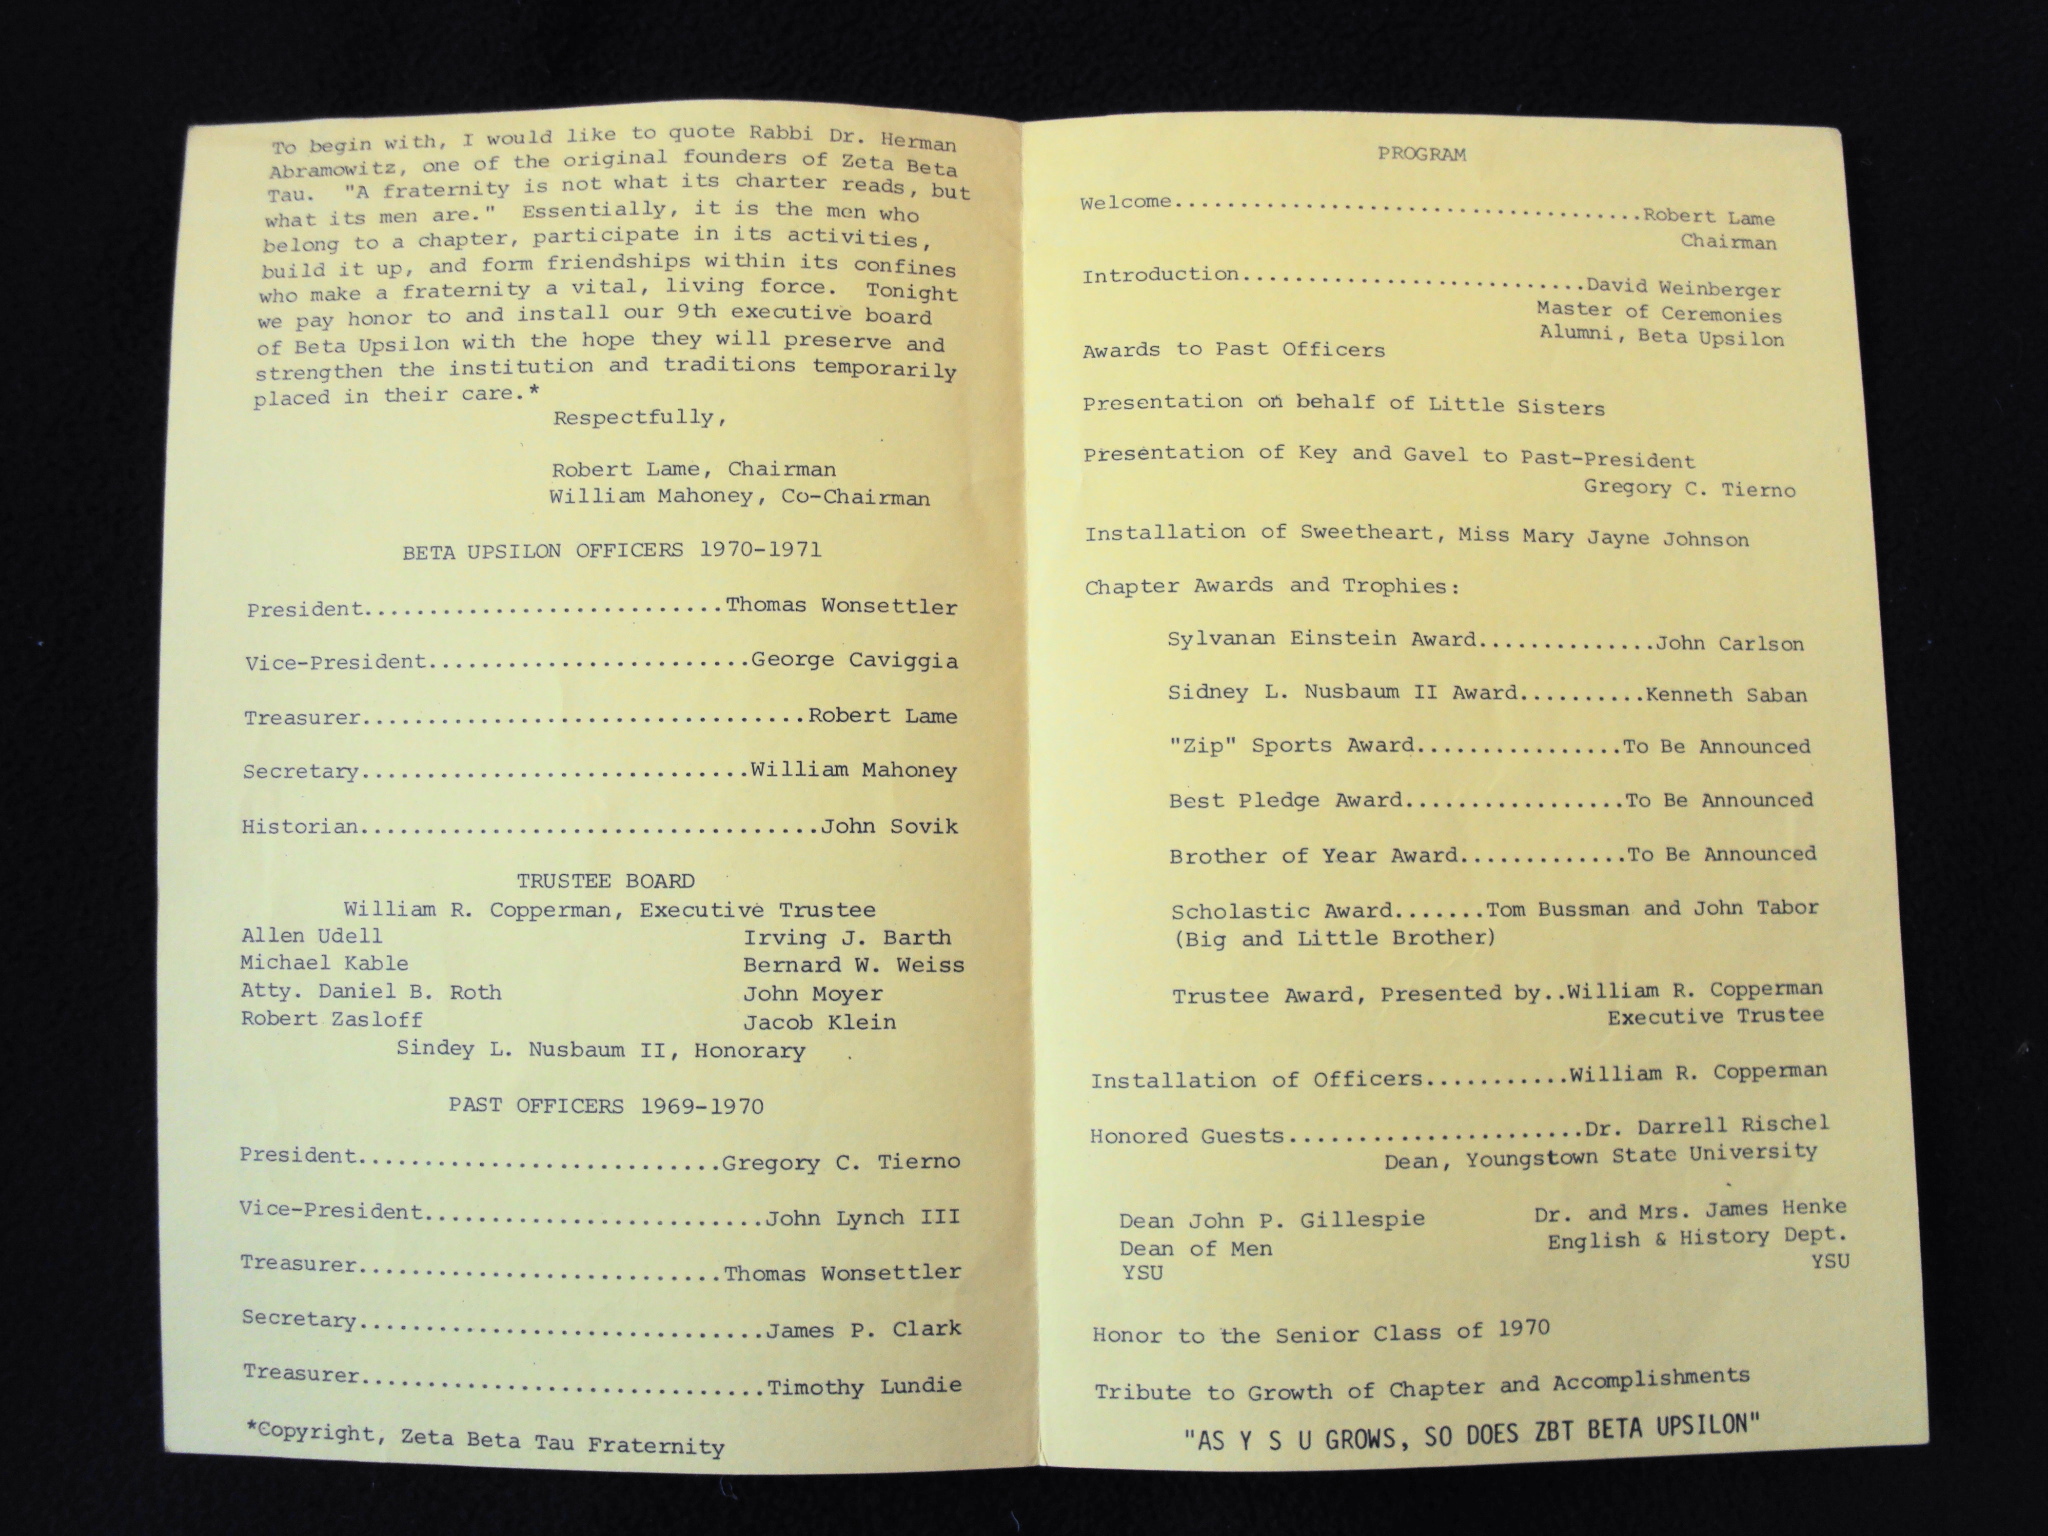 To begin with, I would like to quote Rabbi Dr. Herman
Abramowitz, one of the original founders of Zeta Beta
Tau. "A fraternity is not what its charter reads, but
what its men are." Essentially, it is the men who
belong to a chapter, participate in its activities,
build it up, and form friendships within its confines
who make a fraternity a vital, living force. Tonight
we pay honor to and install our 9th executive board
of Beta Upsilon with the hope they will preserve and
strengthen the institution and traditions temporarily
placed in their care.*
Respectfully,
Robert Lame, Chairman
William Mahoney, Co-Chairman
BETA UPSILON OFFICERS 1970-1971
President...........................Thomas Wonsettler
Vice-President.........................George Caviggia
Treasurer..................................Robert Lame
Secretary..............................William Mahoney
Historian...................................John Sovik
TRUSTEE BOARD
William R. Copperman, Executive Trustee
Allen Udell Irving J. Barth
Michael Kable Bernard W. Weiss
Atty. Daniel B. Roth John Moyer
Robert Zasloff Jacob Klein
Sindey L. Nusbaum II, Honorary
PAST OFFICERS 1969-1970
President............................Gregory C. Tierno
Vice-President..........................John Lynch III
Treasurer............................Thomas Wonsettler
Secretary...............................James P. Clark
Treasurer...............................Timothy Lundie
*Copyright, Zeta Beta Tau Fraternity
PROGRAM
Welcome....................................Robert Lame
Chairman
Introduction..........................David Weinberger
Master of Ceremonies
Alumni, Beta Upsilon
Awards to Past Officers
Presentation on behalf of Little Sisters
Presentation of Key and Gavel to Past-President
Gregory C. Tierno
Installation of Sweetheart, Miss Mary Jayne Johnson
Chapter Awards and Trophies:
Sylvanan Einstein Award..............John Carlson
Sidney L. Nusbaum II Award..........Kenneth Saban
"Zip" Sports Award................To Be Announced
Best Pledge Award.................To Be Announced
Brother of Year Award.............To Be Announced
Scholastic Award.......Tom Bussman and John Tabor
(Big and Little Brother)
Trustee Award, Presented by..William R. Copperman
Executive Trustee
Installation of Officers...........William R. Copperman
Honored Guests.......................Dr. Darrell Rischel
Dean, Youngstown State University
Dean John P. Gillespie Dr. and Mrs. James Henke
Dean of Men English & History Dept.
YSU YSU
Honor to the Senior Class of 1970
Tribute to Growth of Chapter and Accomplishments
"AS Y S U GROWS, SO DOES ZBT BETA UPSILON"